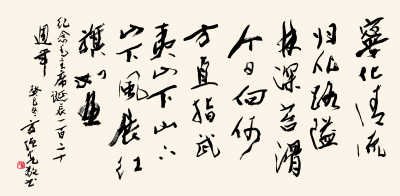 寧化清流
归化路隘
林深苔滑
今日向何
方直指武
夷山下山下
山下風展红
旗如画
紀念毛主席誕辰一百二十
週年
癸巳冬